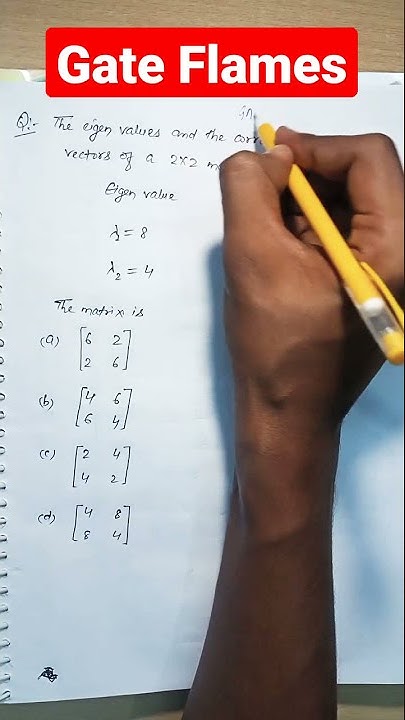 Gate Flames
Q:- The eigen values and the
vectors of a 2×2
Eigen value
λ1 = 8
λ2 = 4
The matrix is
(a) [6 2
2 6]
(b) [4 6
6 4]
(c) [2 4
4 2]
(d) [4 8
8 4]